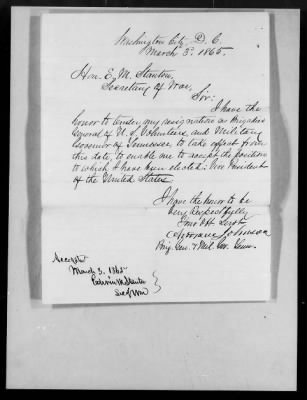 Washington City, D. C.
March 3d. 1865.
Hon. E. M. Stanton,
Secretary of War,
Sir:
I have the
honor to tender my resignation as Brigadier
General of U. S. Volunteers, and Military
Governor of Tennessee, to take effect from
this date, to enable me to accept the position
to which I have been elected: Vice President
of the United States.
I have the honor to be
very Respectfully
Your Obt Servt
Andrew Johnson
Brig. Gen. & Mil. Gov. Tenn.
Accepted
March 3. 1865
Edwin M Stanton
Sec of War